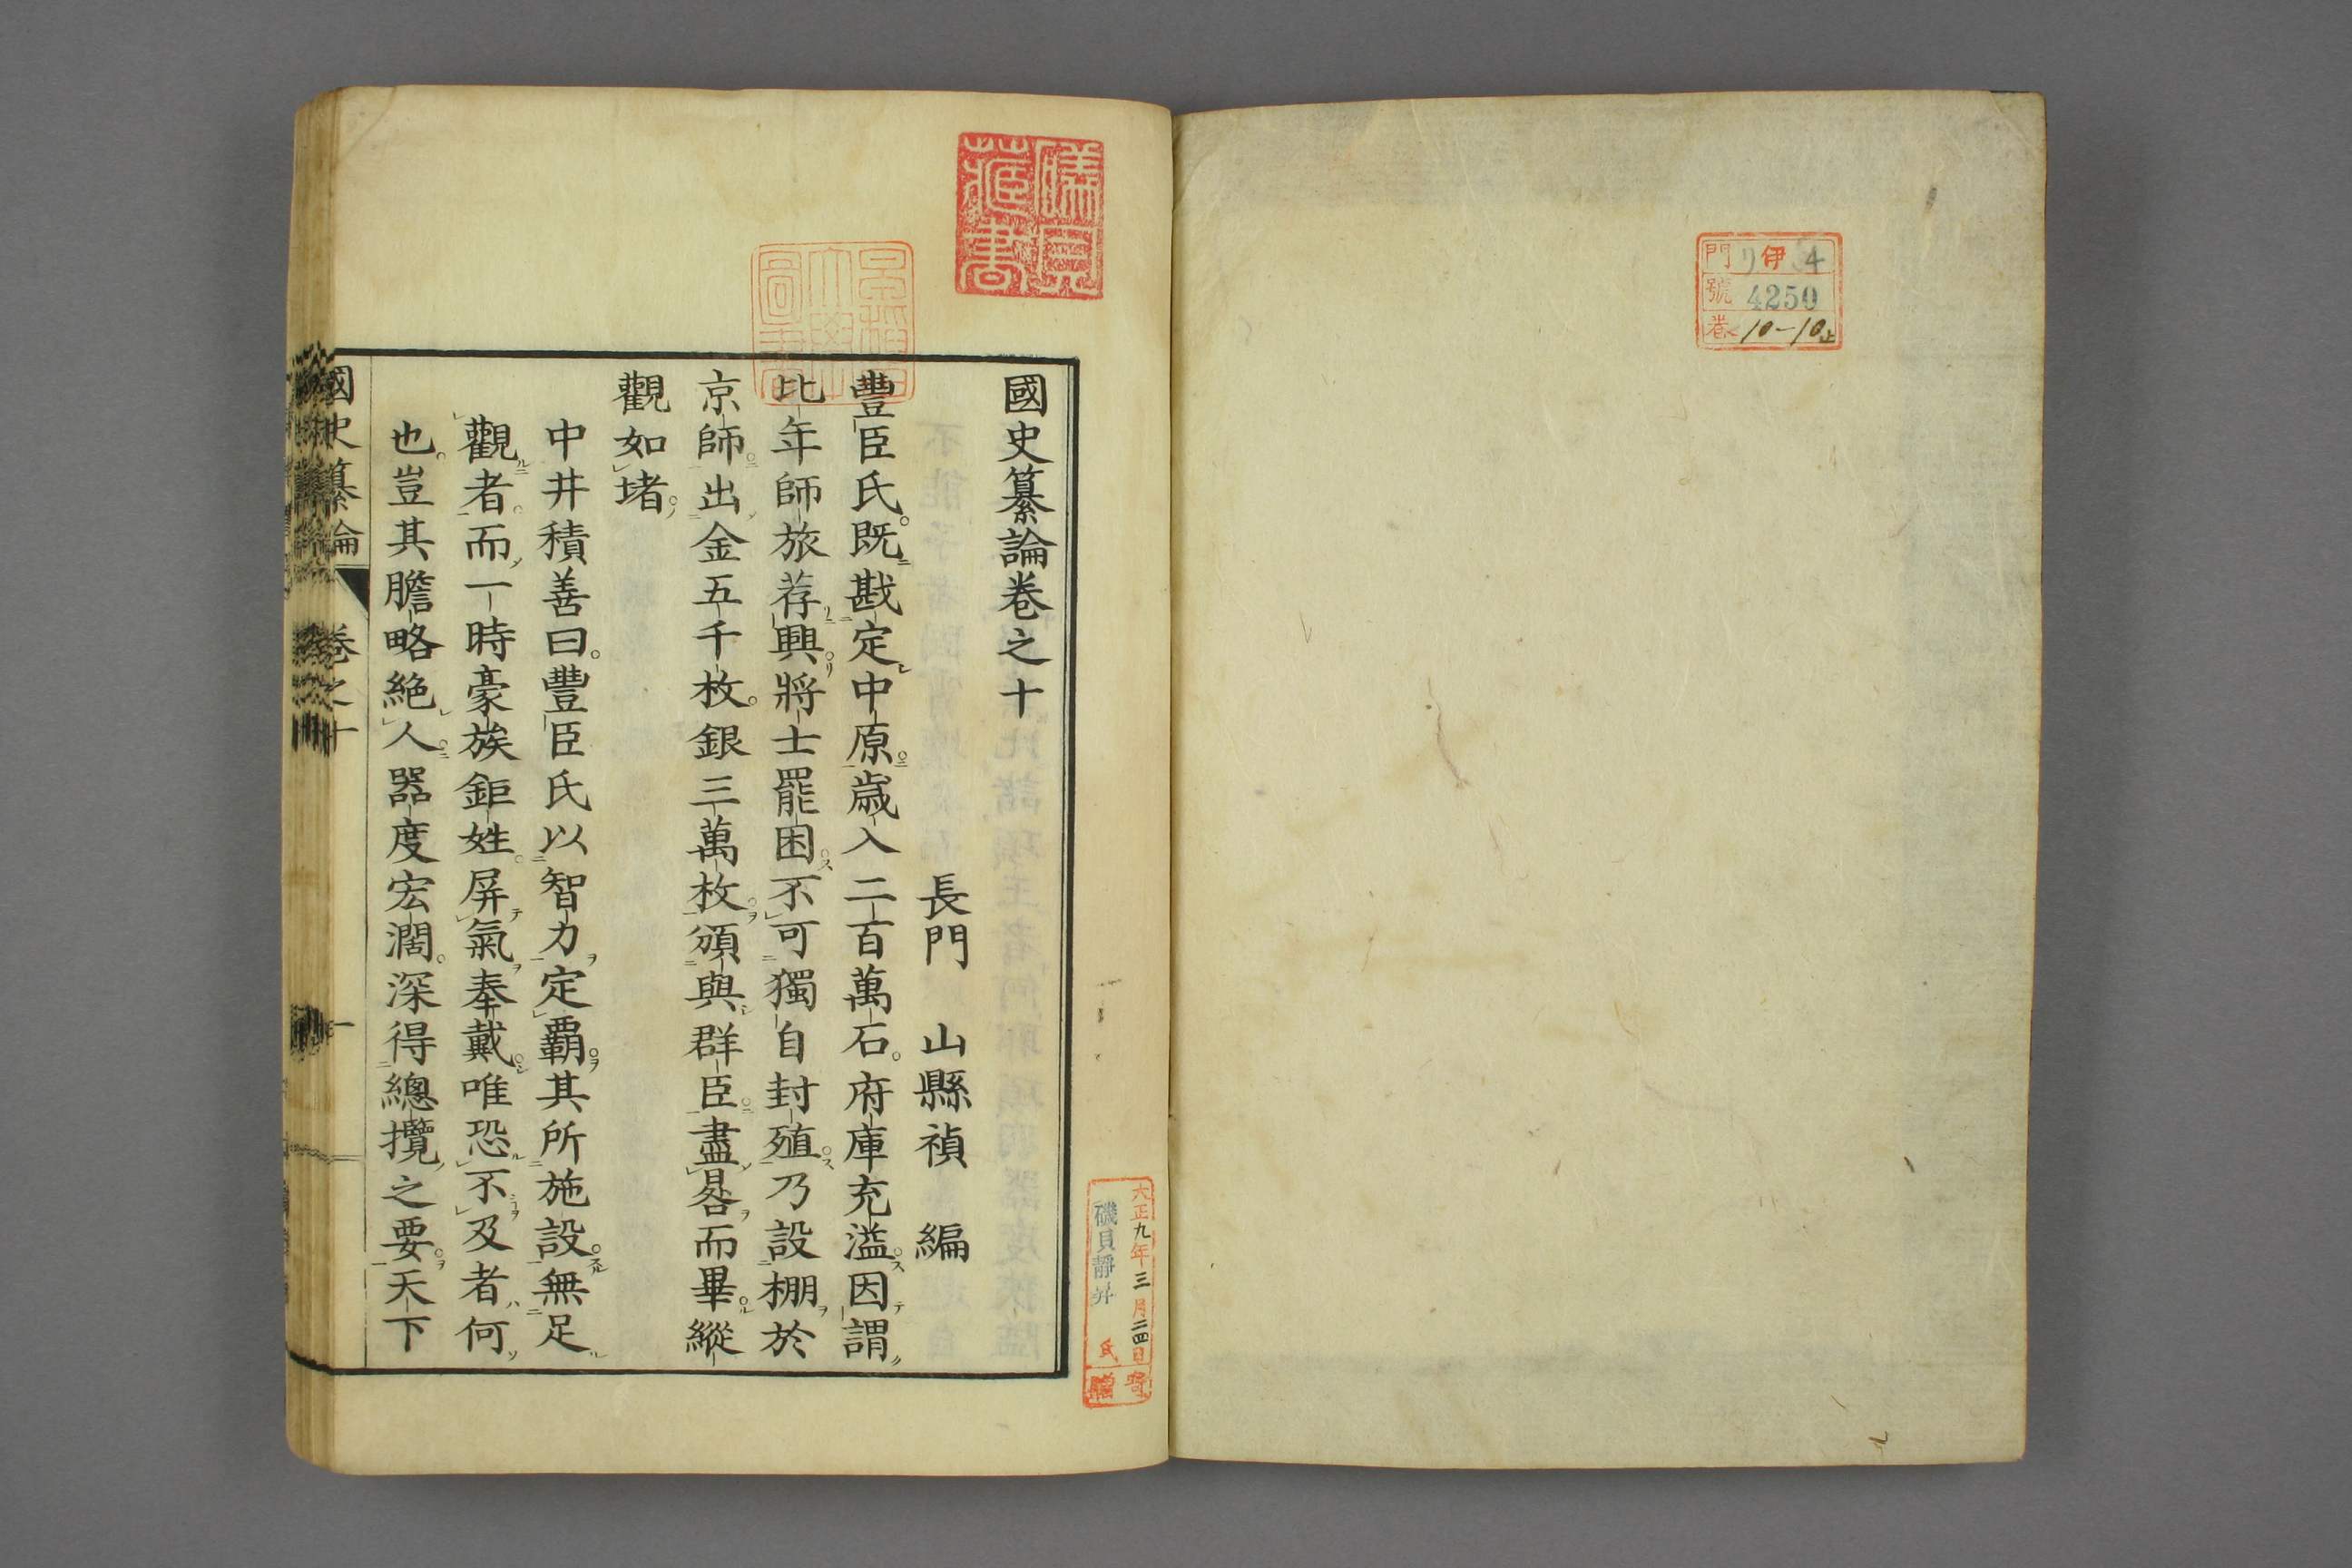 門 伊 4
號 4250
巻 10-10止
磯貝
藏書
早稲田
大學
圖書
國史纂論卷之十
長門 山縣禎 編
豊臣氏。既戡定中原。歳入二百萬石。府庫充溢。因謂
比年師旅荐興。將士罷困。不可獨自封殖。乃設棚於
京師。出金五千枚。銀三萬枚。頒與群臣。盡晷而畢。縱
觀如堵。
中井積善曰。豊臣氏以智力定覇。其所施設。無足
觀者。而一時豪族鉅姓。屏氣奉戴。唯恐不及者何
也。豈其膽略絶人。器度宏濶。深得總攬之要。天下
國史纂論 卷之十 一
大正九年三月二四日寄
磯貝靜 氏贈